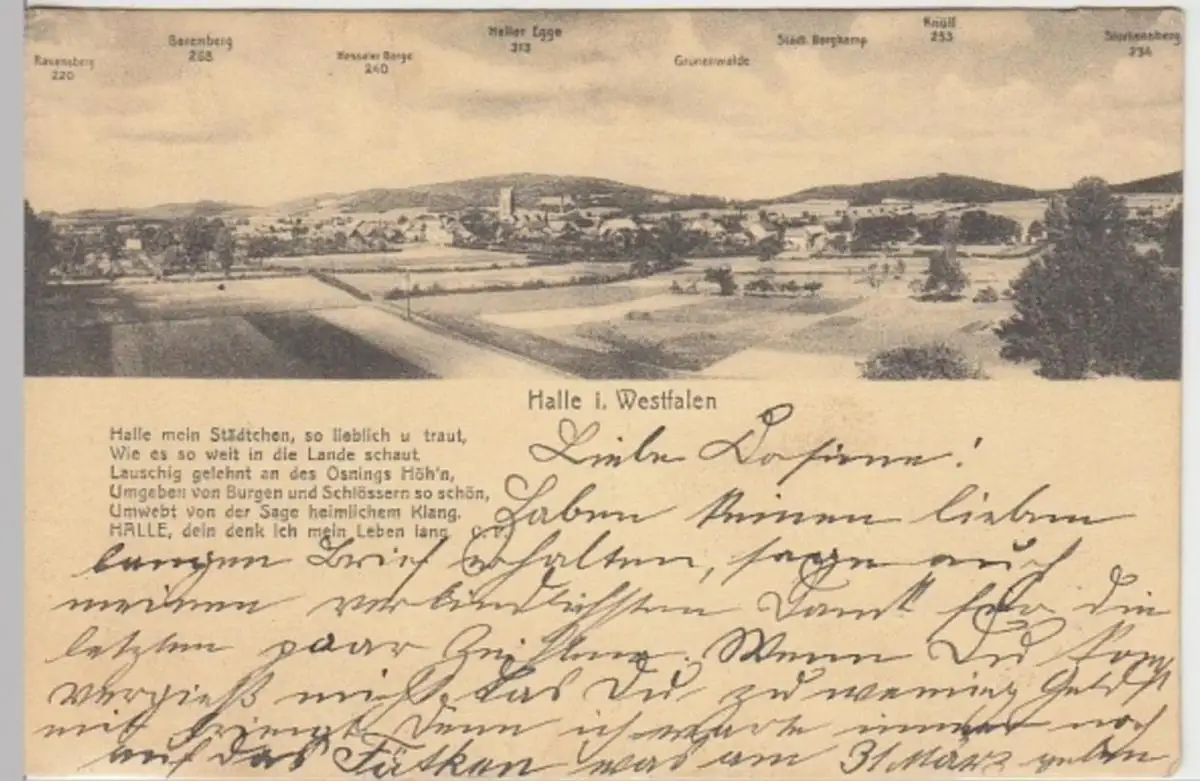 Ravensberg
220
Barenberg
268
Hesseler Berge
240
Haller Egge
313
Grünenwalde
Städt. Bergkamp
Knüll
253
Storkensberg
234
Halle i. Westfalen
Halle mein Städtchen, so lieblich u traut,
Wie es so weit in die Lande schaut
Lauschig gelehnt an des Osnings Höh'n,
Umgeben von Burgen und Schlössern so schön,
Umwebt von der Sage heimlichem Klang.
HALLE, dein denk ich mein Leben lang
Liebe
Haben Deinen lieben
langen Brief erhalten, sage auch
meinen verbindlichsten Dank für die
letzten paar Zeilen. Wenn Du
mich das Du zu wenig Geld
mit denn ich warte immer noch
auf das was am 31 März